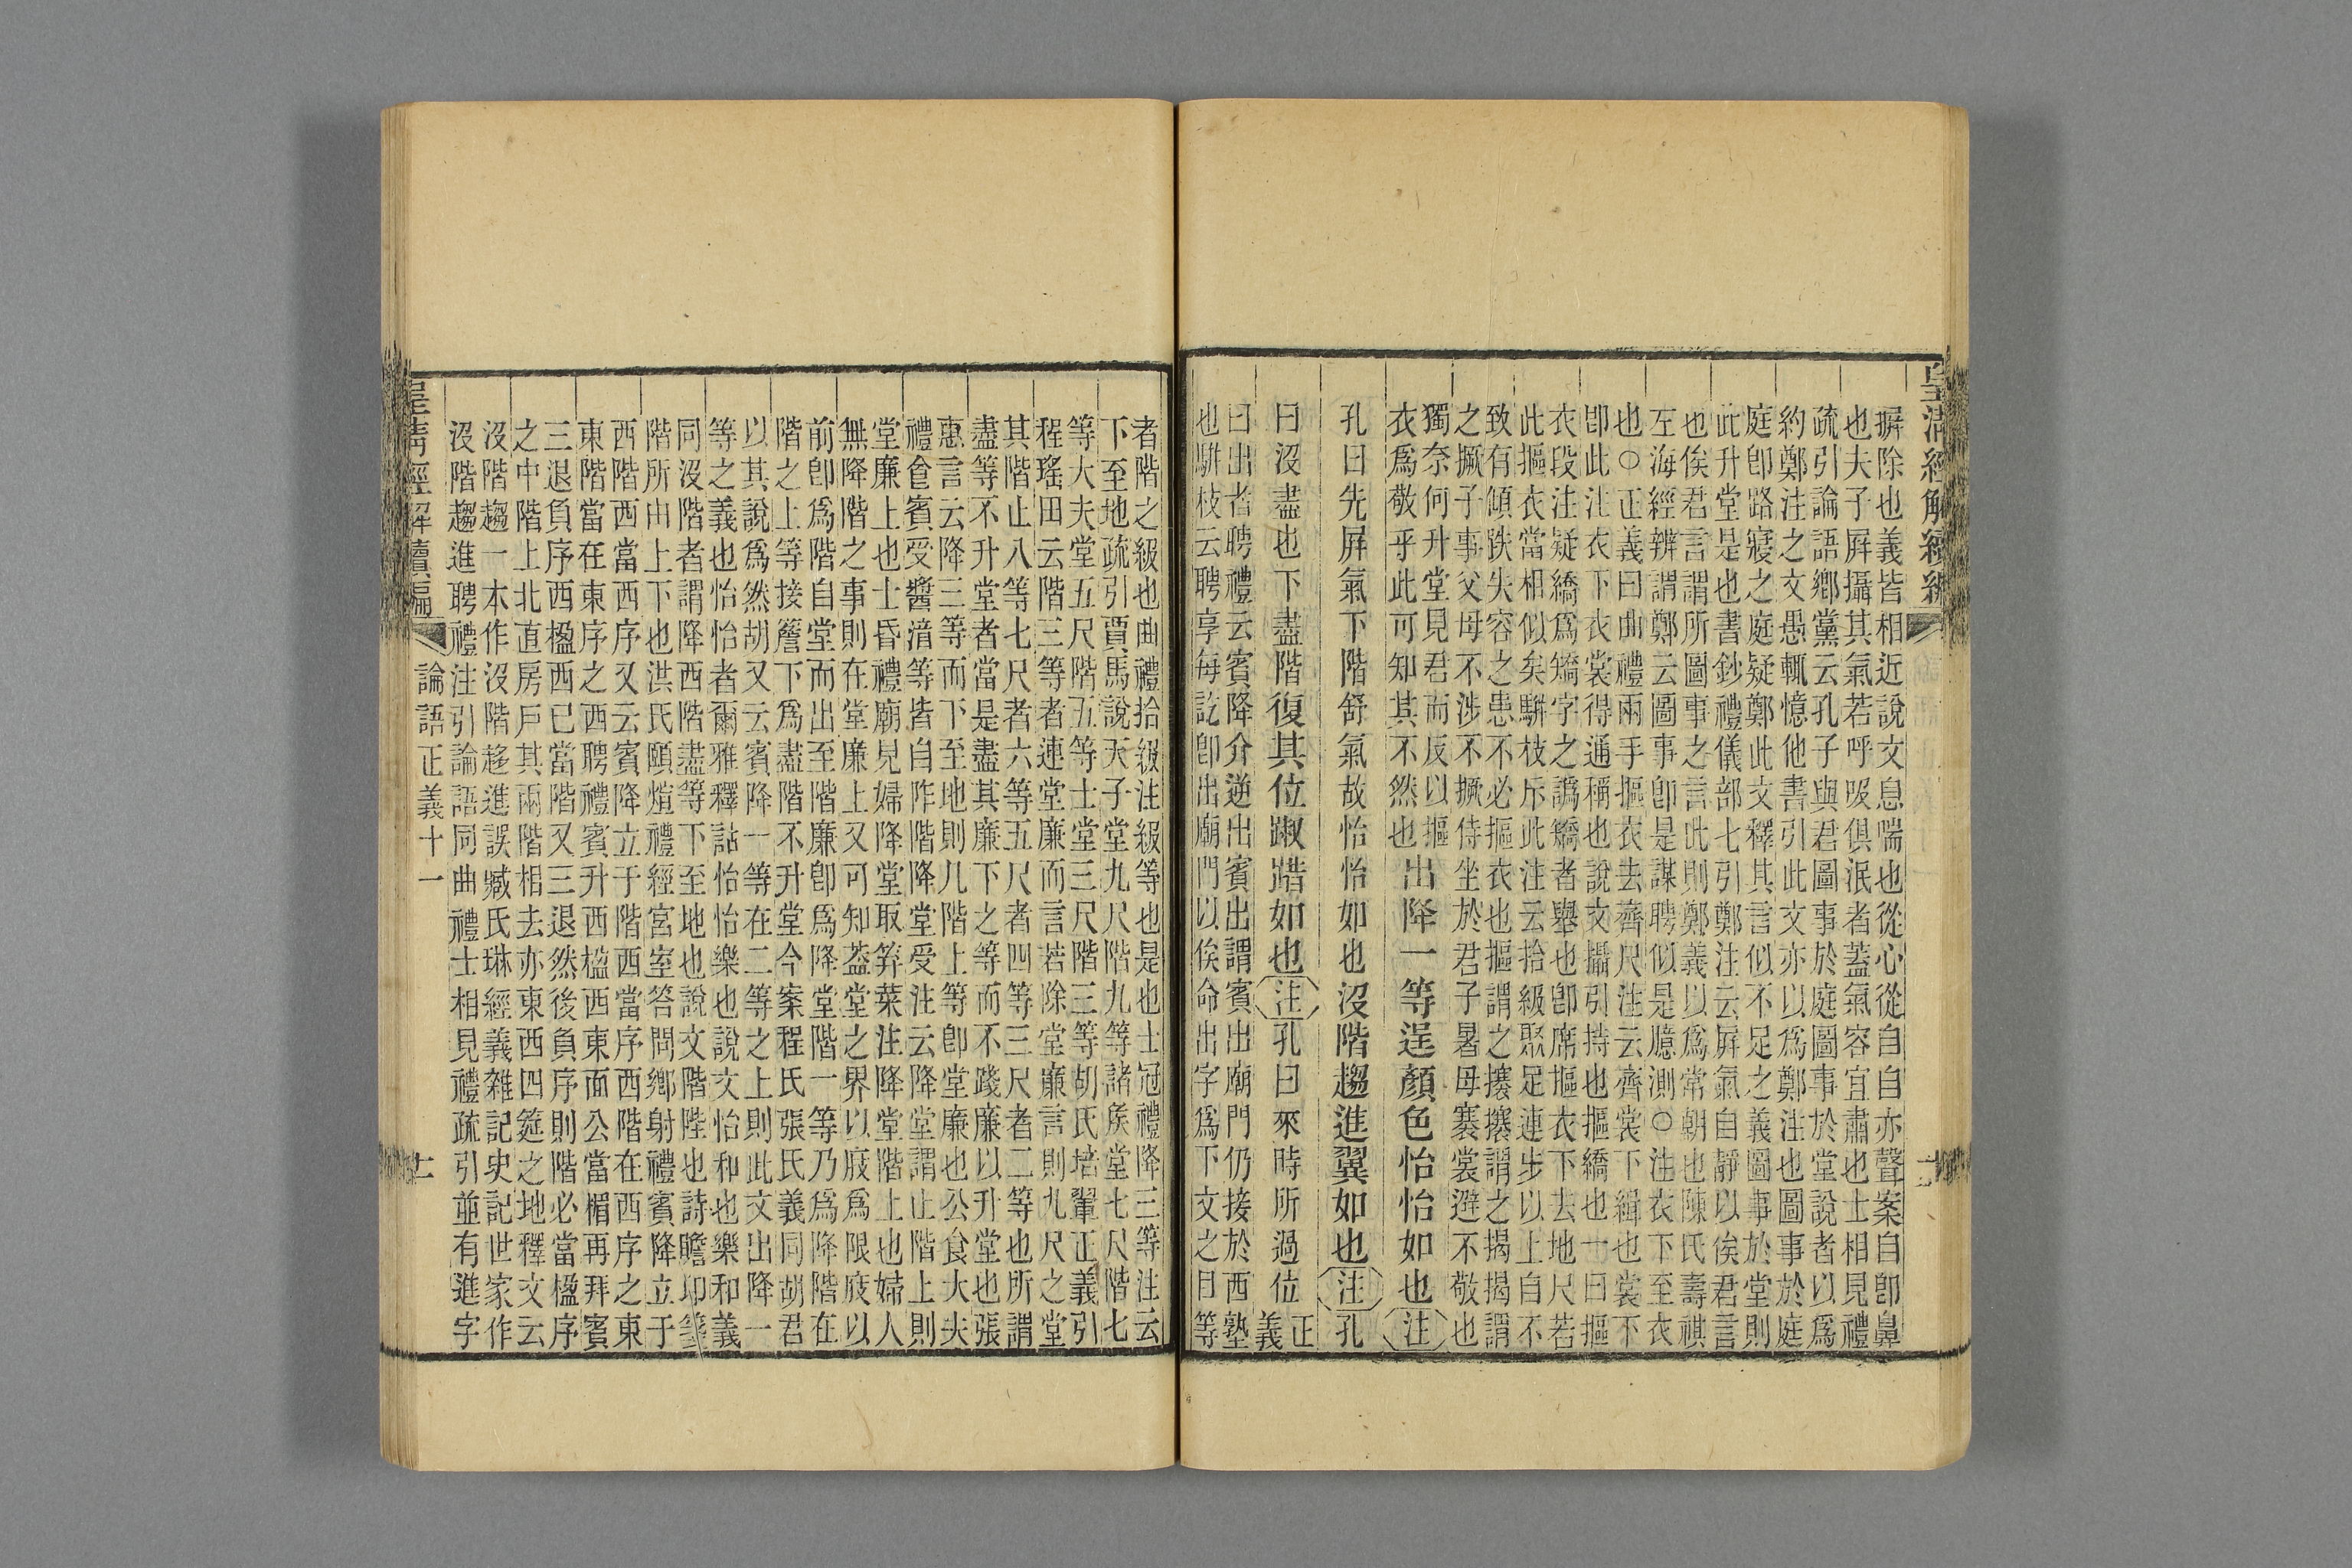 皇清經解續編
摒除也義皆相近說文息喘也從心從自自亦聲案自卽鼻
也夫子屛攝其氣若呼吸俱泯者蓋氣容宜肅也士相見禮
疏引論語鄉黨云孔子與君圖事於庭圖事於堂說者以爲
約鄭注之文愚輒憶他書引此文亦以爲鄭注也圖事於庭
庭卽路寢之庭疑鄭此文釋其言似不足之義圖事於堂則
此升堂是也書鈔禮儀部七引鄭注云屛氣自靜以俟君言
也俟君言謂所圖事之言此則鄭義以爲常朝也陳氏壽祺
左海經辨謂鄭云圖事卽是謀聘似是臆測○注衣下至衣
也○正義曰曲禮兩手摳衣去齊尺注云齊裳下緝也裳下
卽此注衣下衣裳得通稱也說文攝引持也摳繑也一曰摳
衣段注疑繑爲矯字之譌矯者舉也卽席摳衣下去地尺若
此摳衣當相似矣騈枝斥此注云拾級聚足連步以上自不
致有傾跌失容之患不必摳衣也摳謂之攐攐謂之揭揭謂
之撅子事父母不涉不撅侍坐於君子暑毋褰裳避不敬也
獨奈何升堂見君而反以摳
衣爲敬乎此可知其不然也
出降一等逞顏色怡怡如也注
孔曰先屛氣下階舒氣故怡怡如也沒階趨進翼如也注孔
曰沒盡也下盡階復其位踧踖如也注孔曰來時所過位正義
曰出者聘禮云賓降介逆出賓出謂賓出廟門仍接於西塾
也騈枝云聘享每訖卽出廟門以俟命出字爲下文之目等
者階之級也曲禮拾級注級等也是也士冠禮降三等注云
下至地疏引賈馬說天子堂九尺階九等諸侯堂七尺階七
等大夫堂五尺階五等士堂三尺階三等胡氏培翬正義引
程瑤田云階三等者連堂廉而言若除堂廉言則九尺之堂
其階止八等七尺者六等五尺者四等三尺者二等也所謂
盡等不升堂者當是盡其廉下之等而不踐廉以升堂也張
惠言云降三等而下至地則几階上等卽堂廉也公食大夫
禮食賓受醬湆等皆自阼階降堂受注云降堂謂止階上則
堂廉上也士昏禮廟見婦降堂取笲菜注降堂階上也婦人
無降階之事則在堂廉上又可知葢堂之界以庪爲限庪以
前卽爲階自堂而出至階廉卽爲降堂階一等乃爲降階在
階之上等接簷下爲盡階不升堂今案程氏張氏義同胡君
以其說爲然胡又云賓降一等在二等之上則此文出降一
等之義也怡怡者爾雅釋詁怡怡樂也說文怡和也樂和義
同沒階者謂降西階盡等下至地也說文階陛也詩瞻卬箋
階所由上下也洪氏頤煊禮經宮室答問鄉射禮賓降立于
西階西當西序又云賓降立于階西當序西階在西序之東
東階當在東序之西聘禮賓升西楹西東面公當楣再拜賓
三退負序西楹西已當階又三退然後負序則階必當楹序
之中階上北直房戶其兩階相去亦東西四筵之地釋文云
沒階趨一本作沒階趍進誤臧氏琳經義雜記史記世家作
沒階趨進聘禮注引論語同曲禮士相見禮疏引並有進字
皇清經解續編 論語正義十一